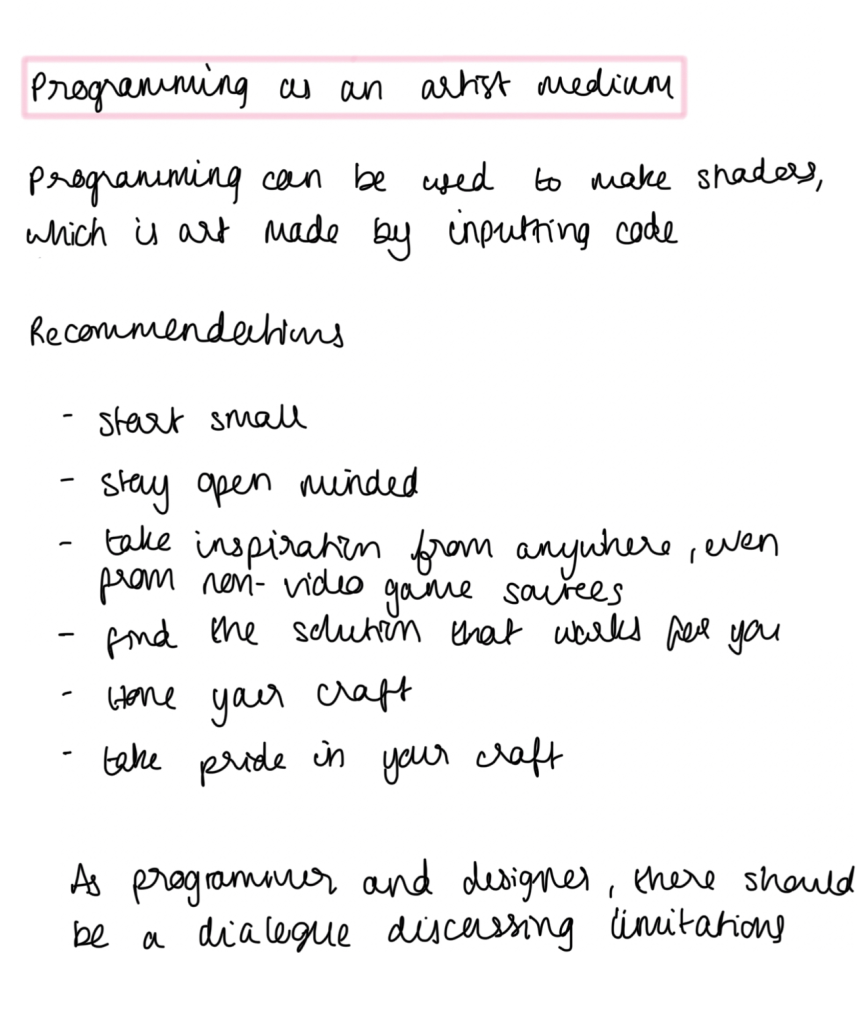 Programming as an artist medium
Programming can be used to make shaders,
which is art made by inputting code
Recommendations
- start small
- stay open minded
- take inspiration from anywhere, even
from non-video game sources
- find the solution that works for you
- Hone your craft
- take pride in your craft
As programmer and designer, there should
be a dialogue discussing limitations